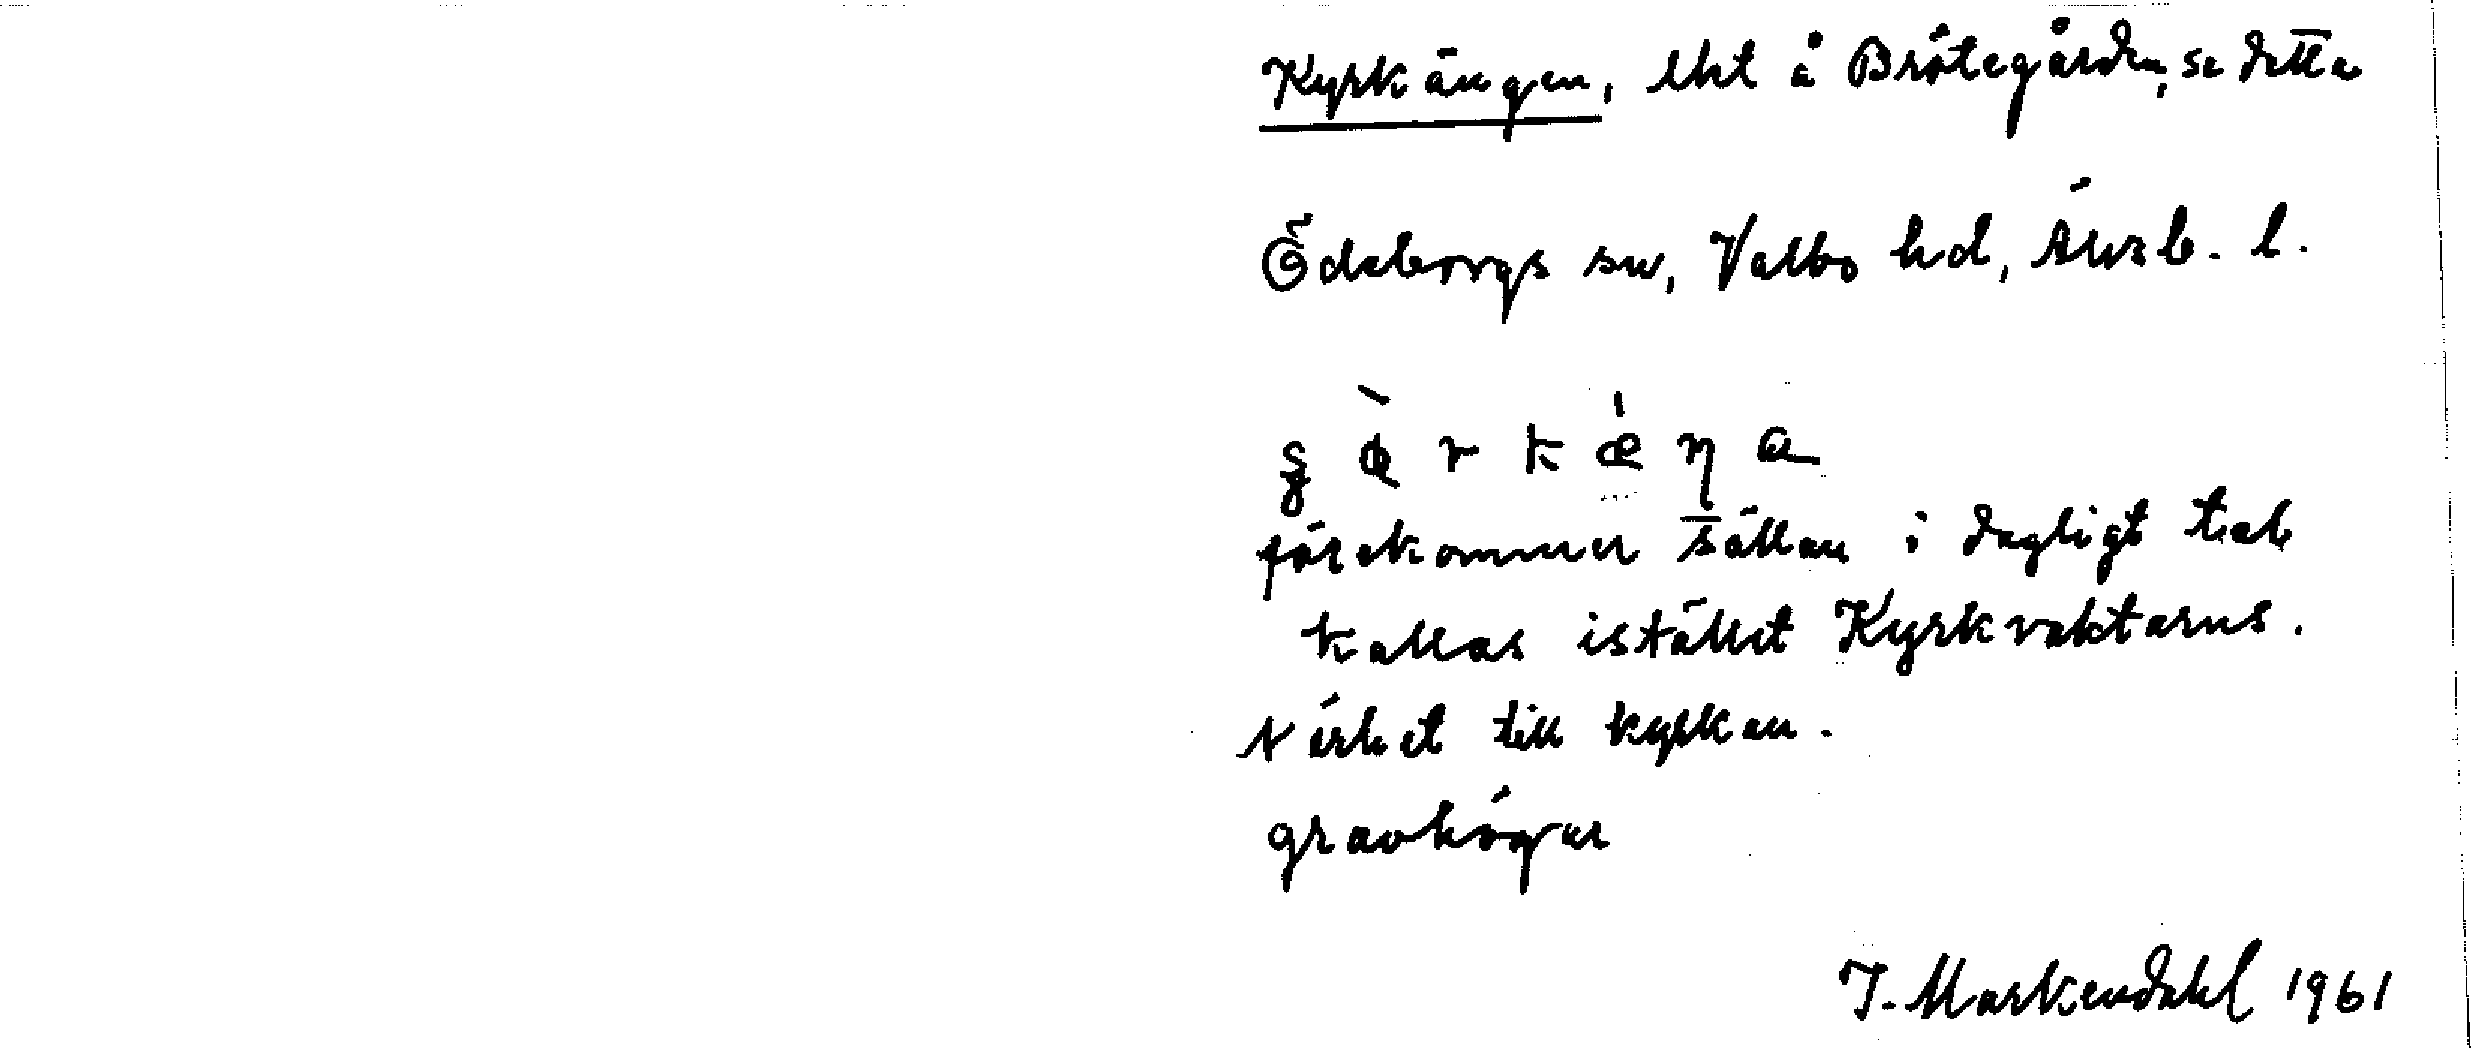 Kyrkängen, lht å Brötegården, se detta
Ödeborgs sn, Valbo hd, Älvsb. l.
förekommer sällan i dagligt tal
kallas istället Kyrkvaktarns.
Närhet till kyrkan.
gravhögar
J. Markendahl 1961